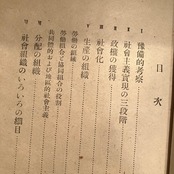 目次
豫備的考察
社會主義實現の三段階
政權の獲得
社會化
生産の組織
勞働の組織
勞働組合と協同組合の役割
共同體的および地區的社會主義
分配の組織
社會組織のいろいろの細目